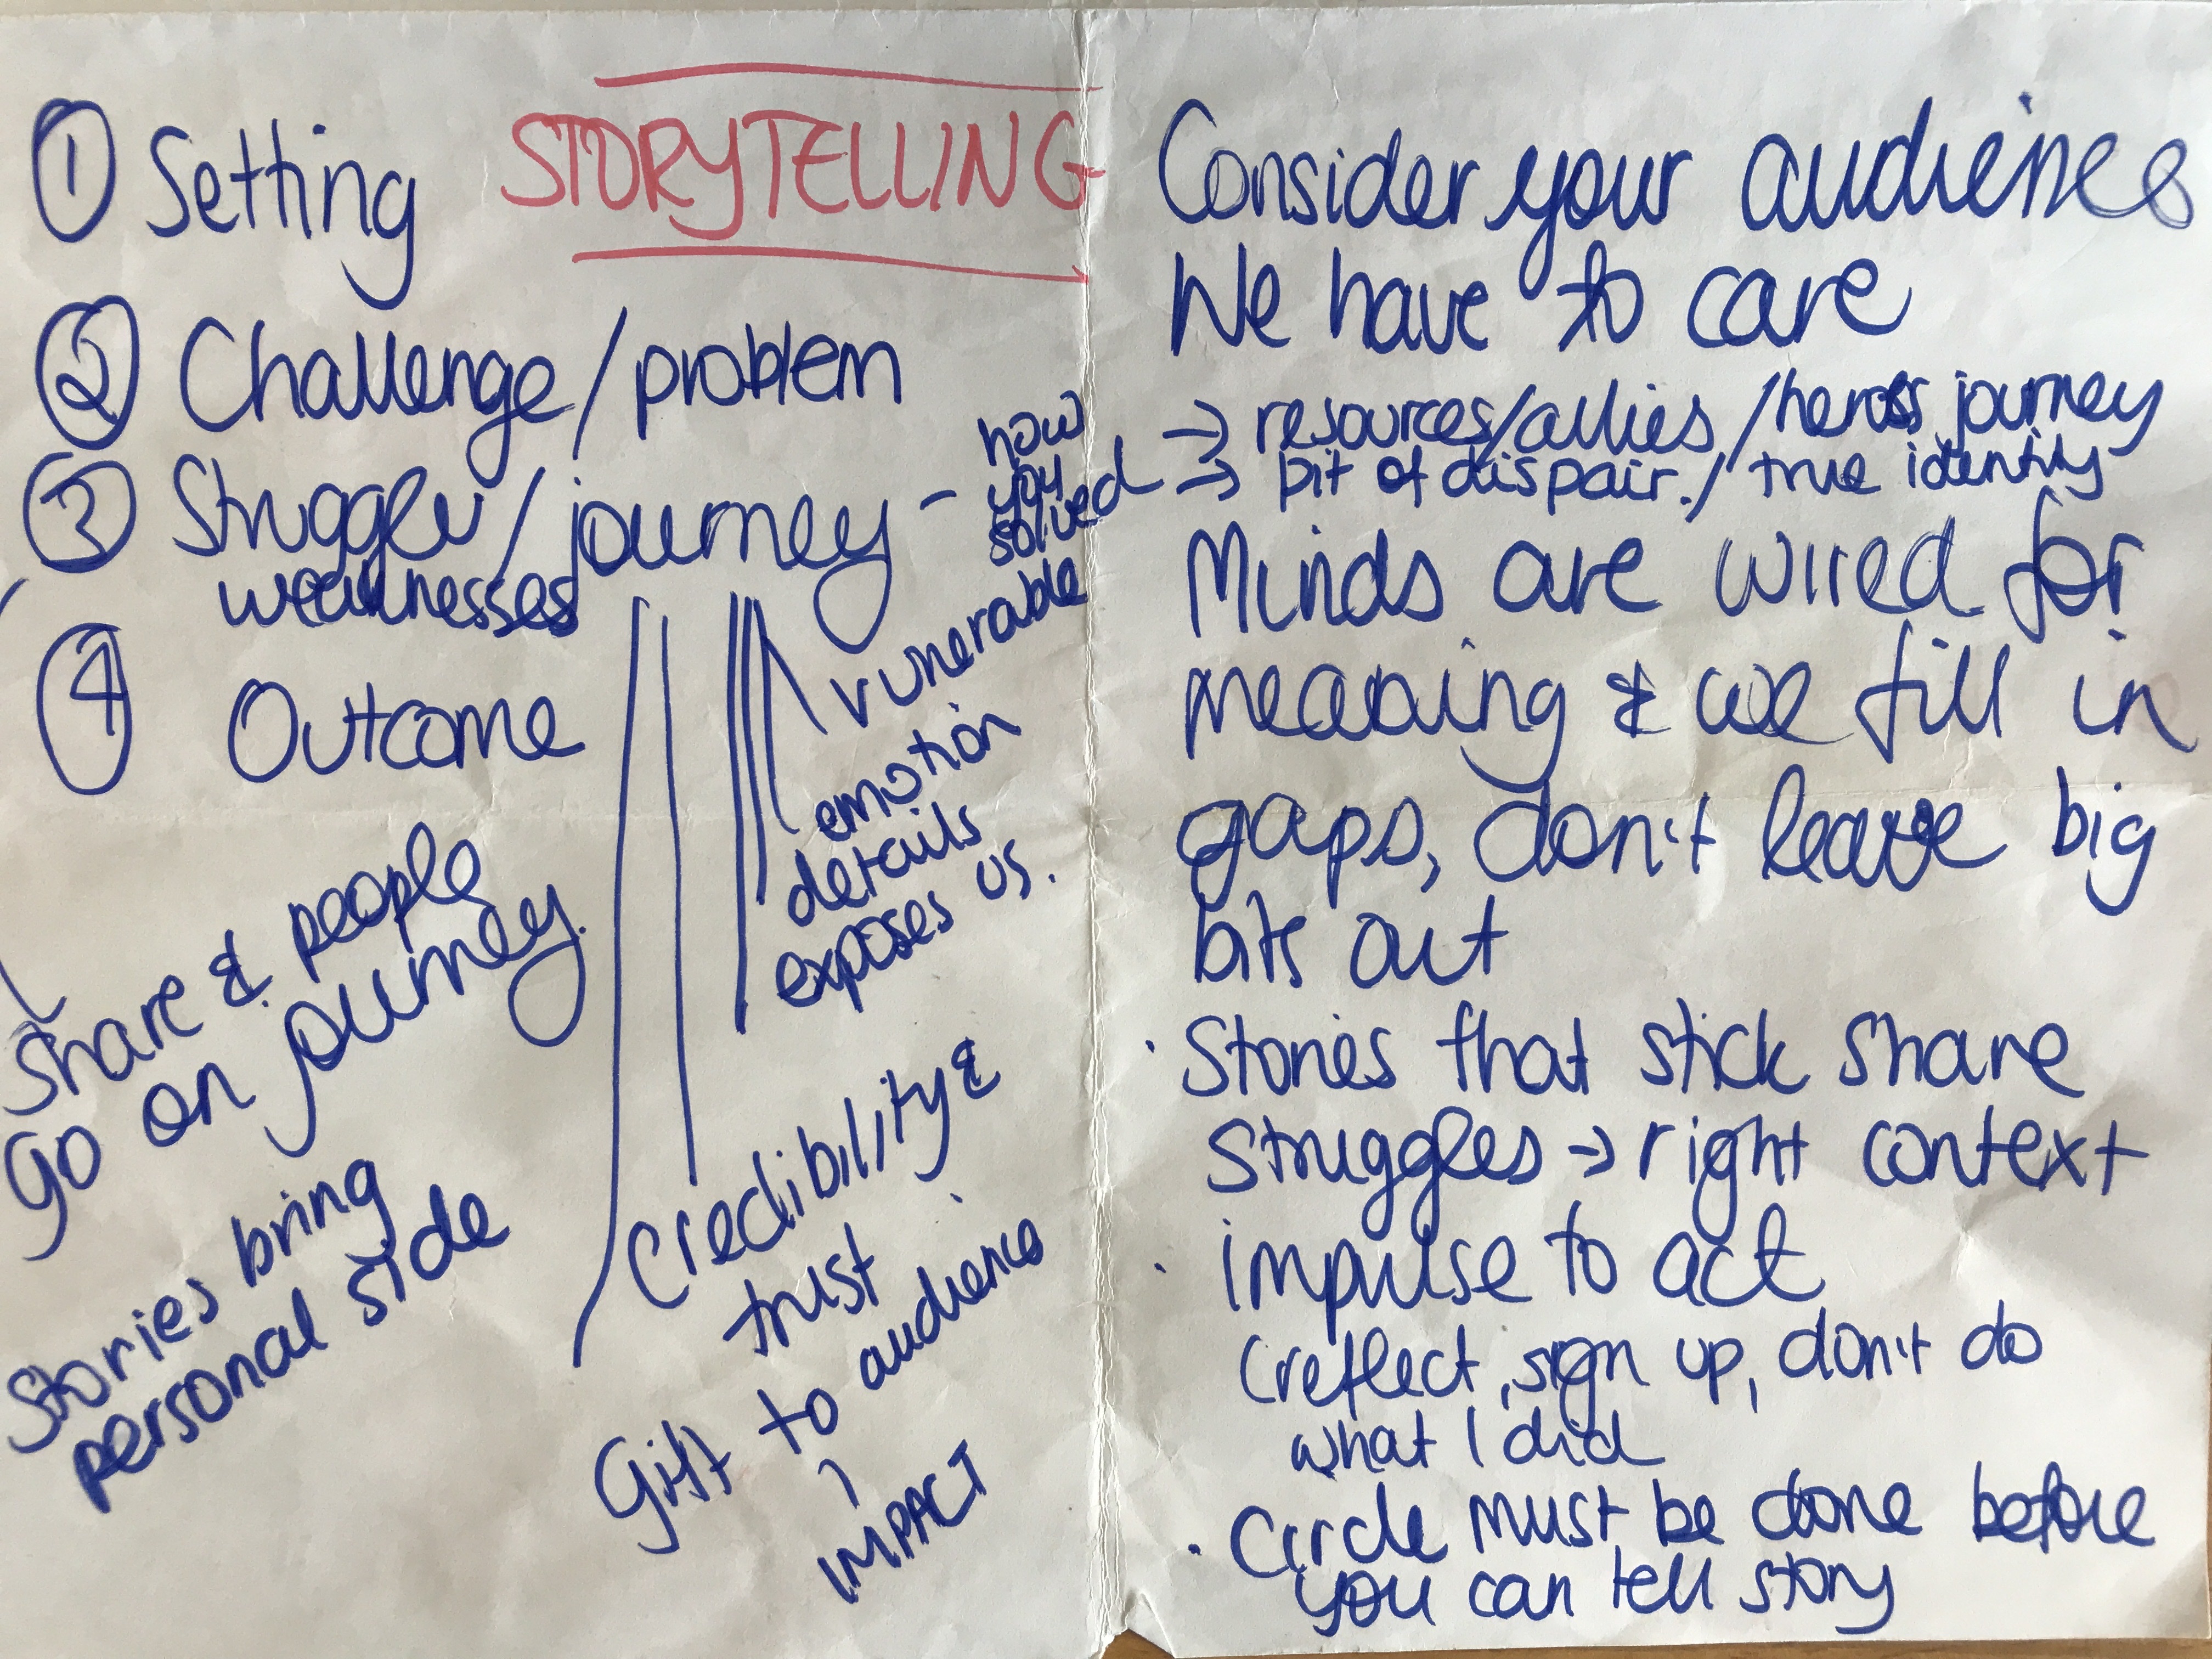 STORYTELLING
① Setting
② Challenge/problem
③ Struggle/journey - how you solved
weaknesses
④ Outcome
vunerable
emotion
details
exposes us.
share & people
go on journey.
Stories bring
personal side
Credibility &
trust
Gift to audience
IMPACT
Consider your audience
We have to care
→ resources/allies/heros journey
→ pit of dispair./true identity
Minds are wired for
meaning & we fill in
gaps, don't leave big
bits out
· Stories that stick share
struggles → right context
· impulse to act
(reflect, sign up, don't do
what I did
· Circle must be done before
you can tell story